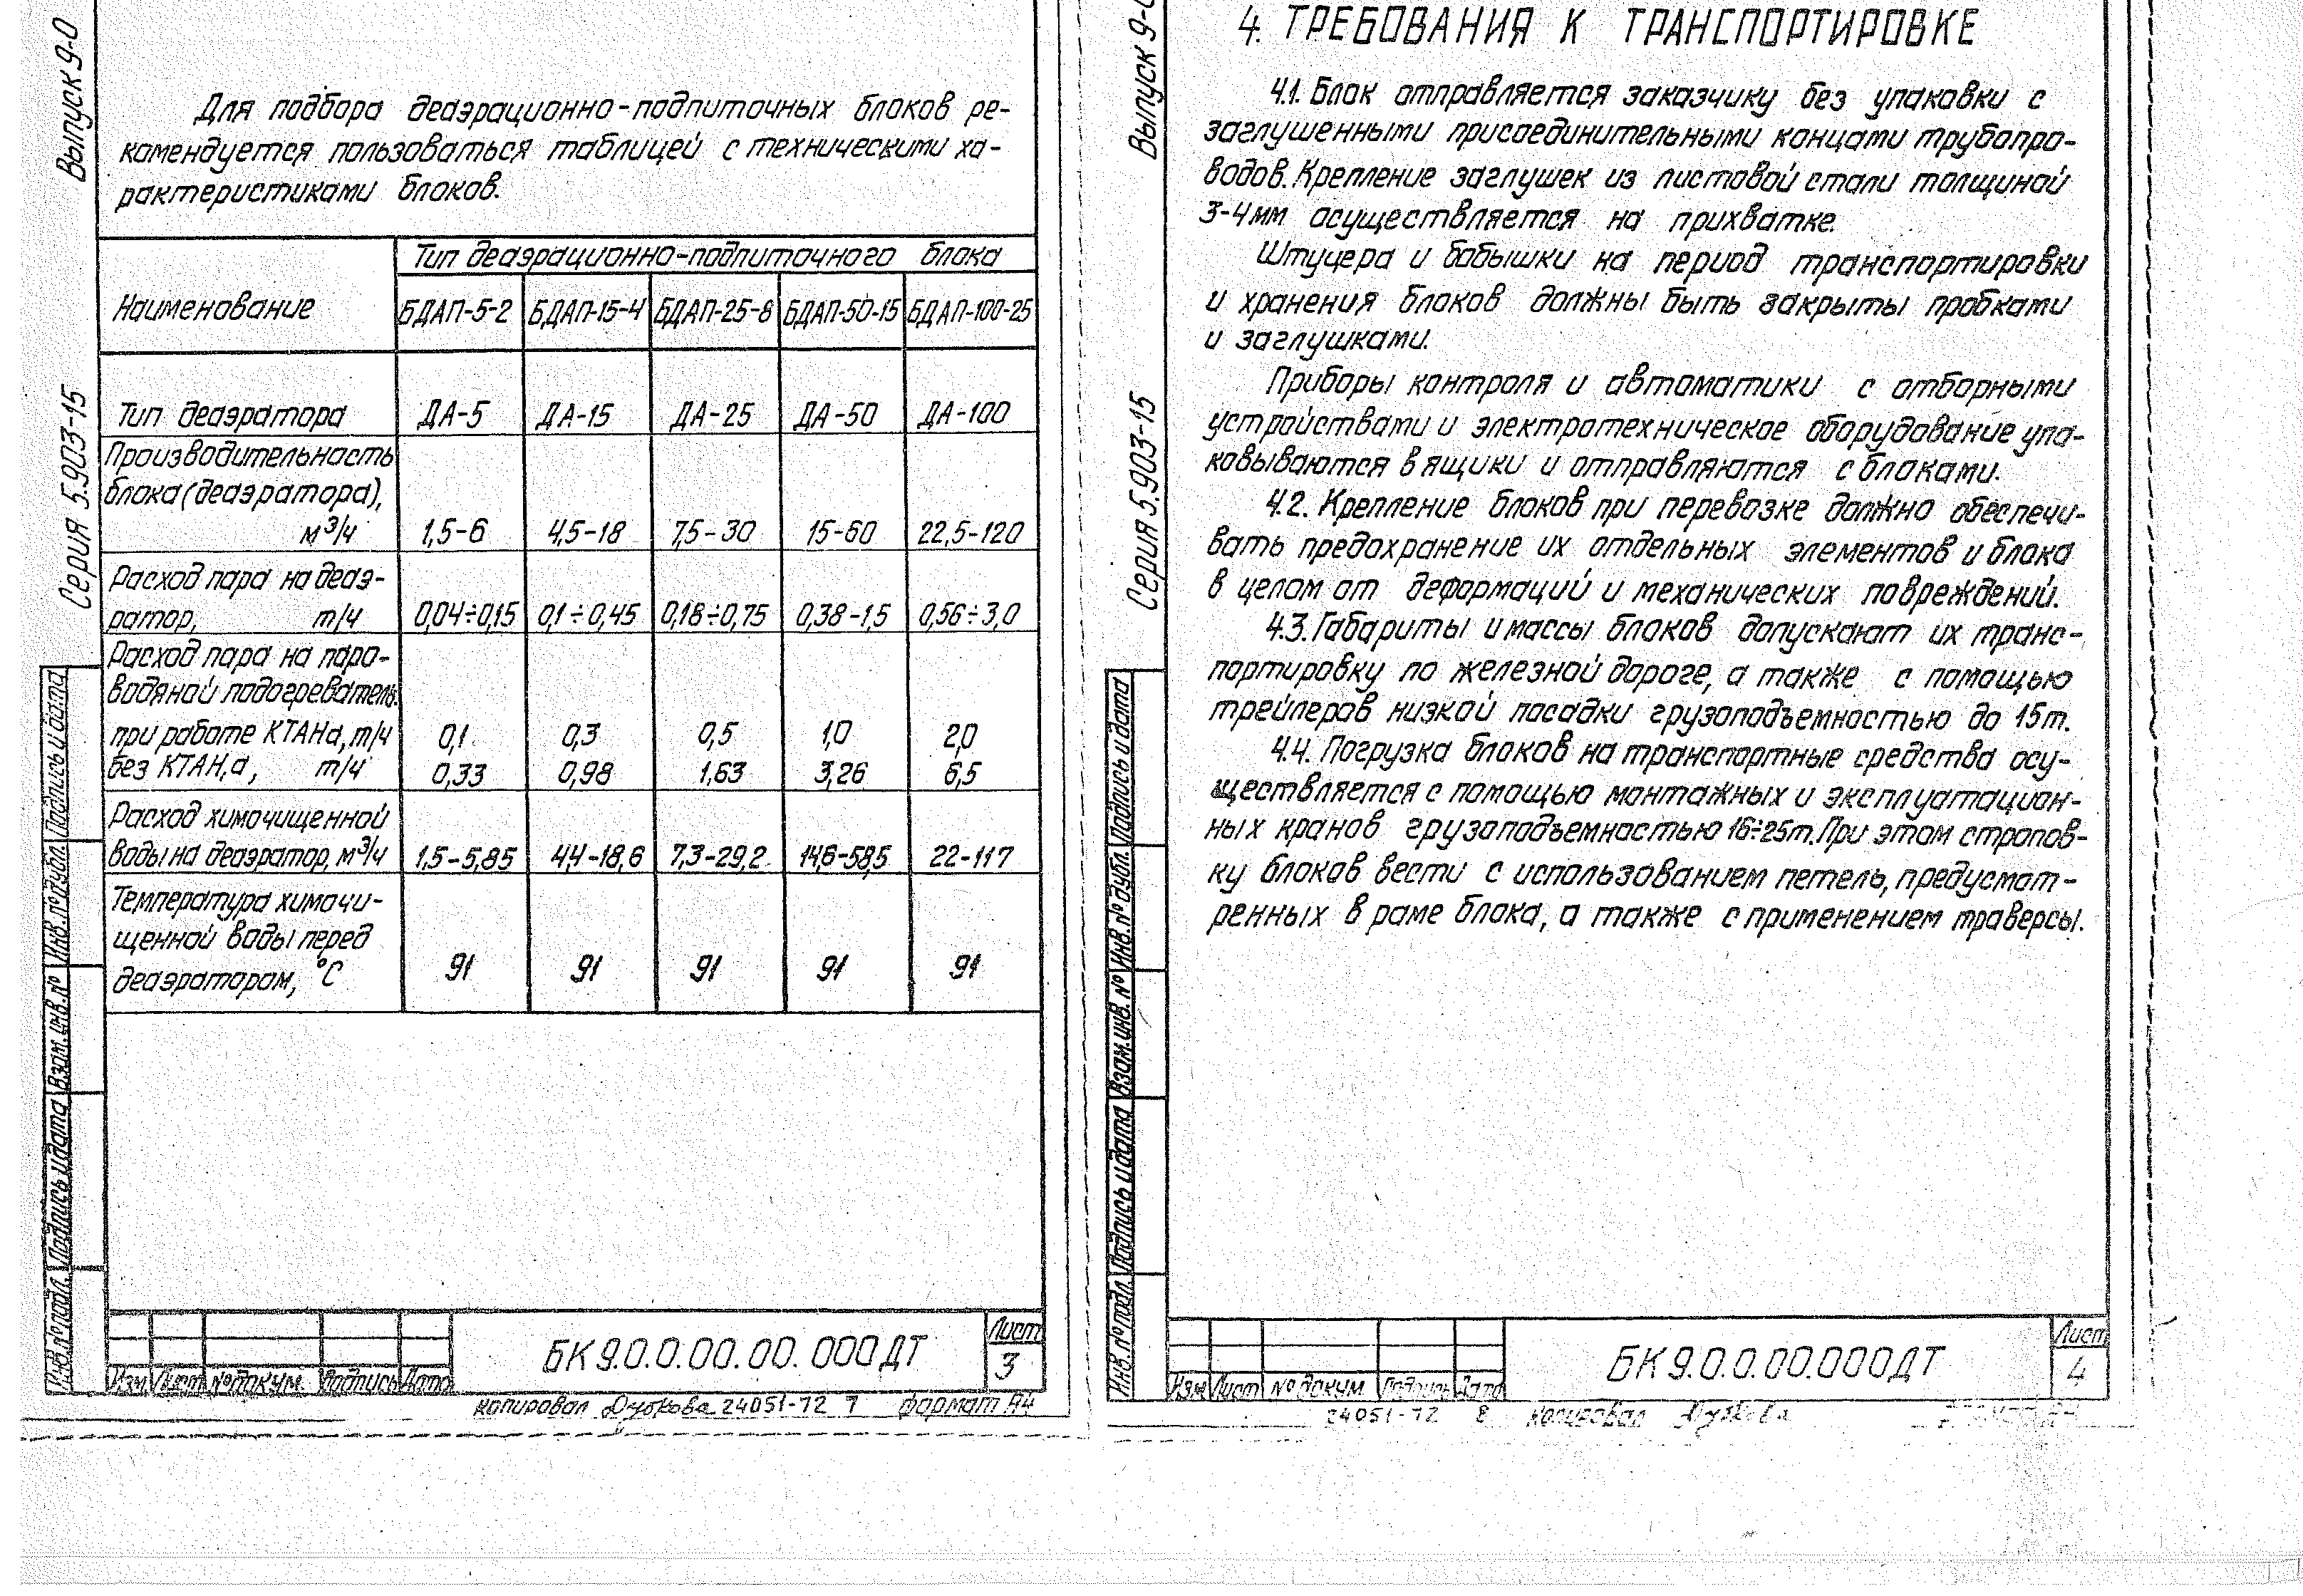 Выпуск 9-0
Для подбора деаэрационно-подпиточных блоков ре-
комендуется пользоваться таблицей с техническими ха-
рактеристиками блоков.
Наименование
Тип деаэрационно-подпиточного блока
БДАП-5-2 БДАП-15-4 БДАП-25-8 БДАП-50-15 БДАП-100-25
Тип деаэратора ДА-5 ДА-15 ДА-25 ДА-50 ДА-100
Производительность
блока (деаэратора),
м³/ч 1,5-6 4,5-18 7,5-30 15-60 22,5-120
Расход пара на деаэ-
ратор, т/ч 0,04÷0,15 0,1÷0,45 0,18÷0,75 0,38-1,5 0,56÷3,0
Расход пара на паро-
водяной подогреватель:
при работе КТАНа, т/ч 0,1 0,3 0,5 1,0 2,0
без КТАН,а, т/ч 0,33 0,98 1,63 3,26 6,5
Расход химочищенной
воды на деаэратор, м³/ч 1,5-5,85 4,4-18,6 7,3-29,2 14,6-58,5 22-117
Температура химочи-
щенной воды перед
деаэратором, °С 91 91 91 91 91
Серия 5.903-15
Подпись и дата
Инв.№ дубл.
Взам.инв.№
Подпись и дата
Инв.№ подл.
Изм Лист № докум. Подпись Дата
БК 9.0.0.00.00.000ДТ
Лист
3
копировал Дубкова 24051-12 7 формат А4
Выпуск 9-0
4. ТРЕБОВАНИЯ К ТРАНСПОРТИРОВКЕ
4.1. Блок отправляется заказчику без упаковки с
заглушенными присоединительными концами трубопро-
водов. Крепление заглушек из листовой стали толщиной
3-4мм осуществляется на прихватке.
Штуцера и бобышки на период транспортировки
и хранения блоков должны быть закрыты пробками
и заглушками.
Приборы контроля и автоматики с отборными
устройствами и электротехническое оборудование упа-
ковываются в ящики и отправляются с блоками.
4.2. Крепление блоков при перевозке должно обеспечи-
вать предохранение их отдельных элементов и блока
в целом от деформаций и механических повреждений.
4.3. Габариты и массы блоков допускают их транс-
портировку по железной дороге, а также с помощью
трейлеров низкой посадки грузоподъемностью до 15т.
4.4. Погрузка блоков на транспортные средства осу-
ществляется с помощью монтажных и эксплуатацион-
ных кранов грузоподъемностью 16÷25т. При этом стропов-
ку блоков вести с использованием петель, предусмот-
ренных в раме блока, а также с применением траверсы.
Серия 5.903-15
Подпись и дата
Инв.№ дубл.
Взам.инв.№
Подпись и дата
Инв.№ подл.
Изм Лист № докум Подпись Дата
БК 9.0.0.00.000ДТ
Лист
4
24051-12 8 копировал Дубкова